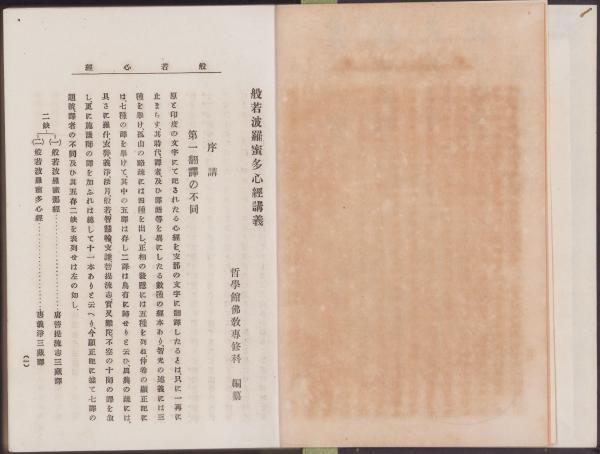 般若心經
般若波羅蜜多心經講義
哲學館佛教專修科 編纂
序講
第一翻譯の不同
原と印度の文字にて記されたる心經を、支那の文字に翻譯したるとは、只に一再に
止まらす、其時代譯者及ひ譯語等を異にしたる數種の經本あり、智光の述義には三
種を擧け、孤山の略疏には四種を出し、正相の發隱には五種を列ね、仲希の顯正記に
は七種の譯を擧けて、其中の五譯は存し二譯は烏有に歸せりと云ひ、眞興の疏には、
具さに羅什玄奘義淨法月般若智慧輪支謙菩提流志實叉難陀不空の十師の譯を出
し、更に施護師の譯を加ふれは總して十一本ありと云へり、今顯正記に據て七譯の
題號譯者の不同及ひ其五存二缺を表列せは左の如し、
二缺
(一)般若波羅蜜那經…………唐菩提流志三藏譯
(二)般若波羅蜜多心經…………唐義淨三藏譯
(一)